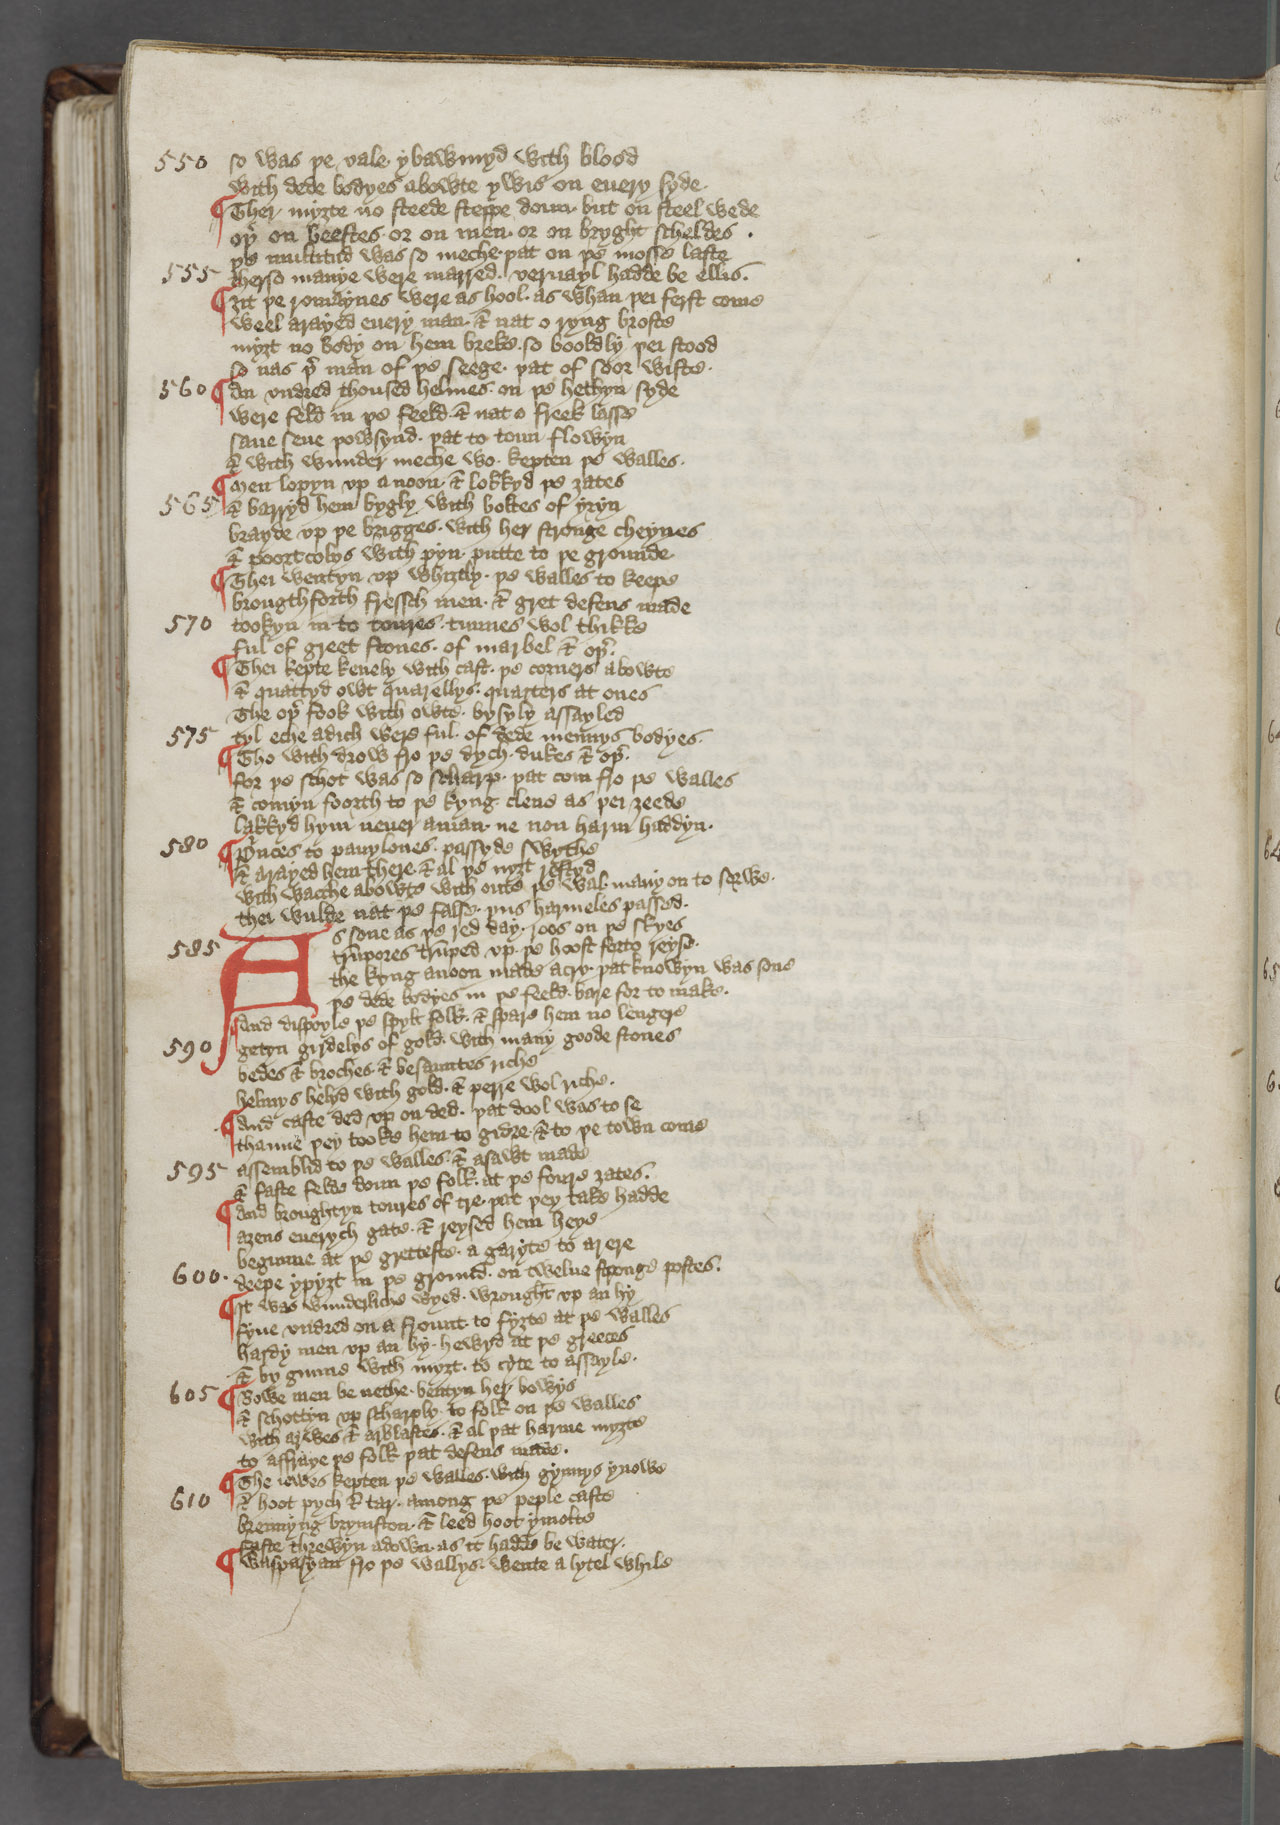 550 so was þe vale ybawmyd with blood
with dede bodyes abowte ywis on euery syde.
¶ Ther myȝte no steede steppe doun. but on steel wede
oþ̉ on beestes. or on men. or on bryght scheldes.
þe multitud was so meche. þat on þe mosse lafte
555 therso manye were marred. veruayl hadde be ellis.
¶ ȝit þe romaynes were as hool. as whan þei ferst come
weel arayed euery man. & nat o ryng broste
myȝt no body on hem breke. so booldly þei stood
so nas þ̉ man of þe seege. þat of soor wiste.
560 ¶ An vndred thoused helmes. on þe hethyn syde
were feld in þe feeld. & nat o freek lasse
saue seue þowsynd. þat to toun flowyn
& with wunder meche wo. kepten þe walles.
¶ Men lopyn vp a noon. & lokkyd þe ȝates
565 & barryd hem bygly with boltes of yryn
brayde vp þe brigges. with her stronge cheynes
& poortcolys with pyn. putte to þe grounde
¶ Thei wentyn vp whiȝtly. þe walles to keepe
brougthforth fressch men. & gret defens made
570 tookyn in to toures. tunnes wol thikke
ful of greet stones. of marbel & oþ̉.
¶ Thei kepte kenely with cast. þe corners abowte
& quattyd owt quarellys. quarters at ones
The oþ̉ fook with owte. bysyly assayled
575 tyl eche adich were ful. of dede mennys bodyes.
¶ Tho with drow fro þe dych. dukes & oþ̉.
for þe schot was so scharp. þat com fro þe walles
& comyn foorth to þe kyng. clene as þei ȝeede
lakkyd hym neuer aman. ne non harm haddyn.
580 ¶ Pr̉nces to pauylones. passyde swythe
& arayed hem there. & al þe nyȝt restyd
with wacche abowte with oute þe wal. many on to serwe.
thei wulde nat þe false. þus harmeles passed.
As sone as þe red day. roos on þe skyes
585 trūpores trūped vp. þe hoost forto reyse.
the kyng anoon made acry. þat knowyn was sone
þe dede bodyes in þe feeld. bare for to make.
¶ And dispoyle þe spylt folk. & spare hem no lengere
getyn girdelys of gold. with many goode stones
590 bedes & broches. & besauntes riche
helmys helyd with gold. & perre wol riche.
¶ And caste ded vp on ded. þat dool was to se
thanne þey tooke hem to gidre. & to þe town come
assemblid to þe walles. & asawt made
595 & faste felde doun þe folk. at þe foure ȝates.
¶ And broughtyn toures of tre. þat þey take hadde
aȝens euerych gate. & reysed hem heye
begunne at þe grettest. a garyte to arere
600. deepe ypyȝt in þe ground. on twelue stronge postes.
¶ It was wunderliche wyed. wrought vp an hy
fyue vndred on a frount. to fyȝte at þe walles
hardy men vp an hy. hewyd at þe greeces
& by gunne with myȝt. to cyte to assayle.
605 ¶ Bowe men be nethe. bentyn her bowys
& schottyn vp scharply. to folk on þe walles
with arwes & arblastes. & al þat harme myȝte
to affraye þe folk þat defens made.
¶ The iewes kepten þe walles. with gynnys ynowe
610 & hoot pych & tar. among þe peple caste
brennyng brymston. & leed hoot ymolte
faste threwyn adown. as it hadde be water.
¶ Waspasyan fro þe wallys. wente a lytel while